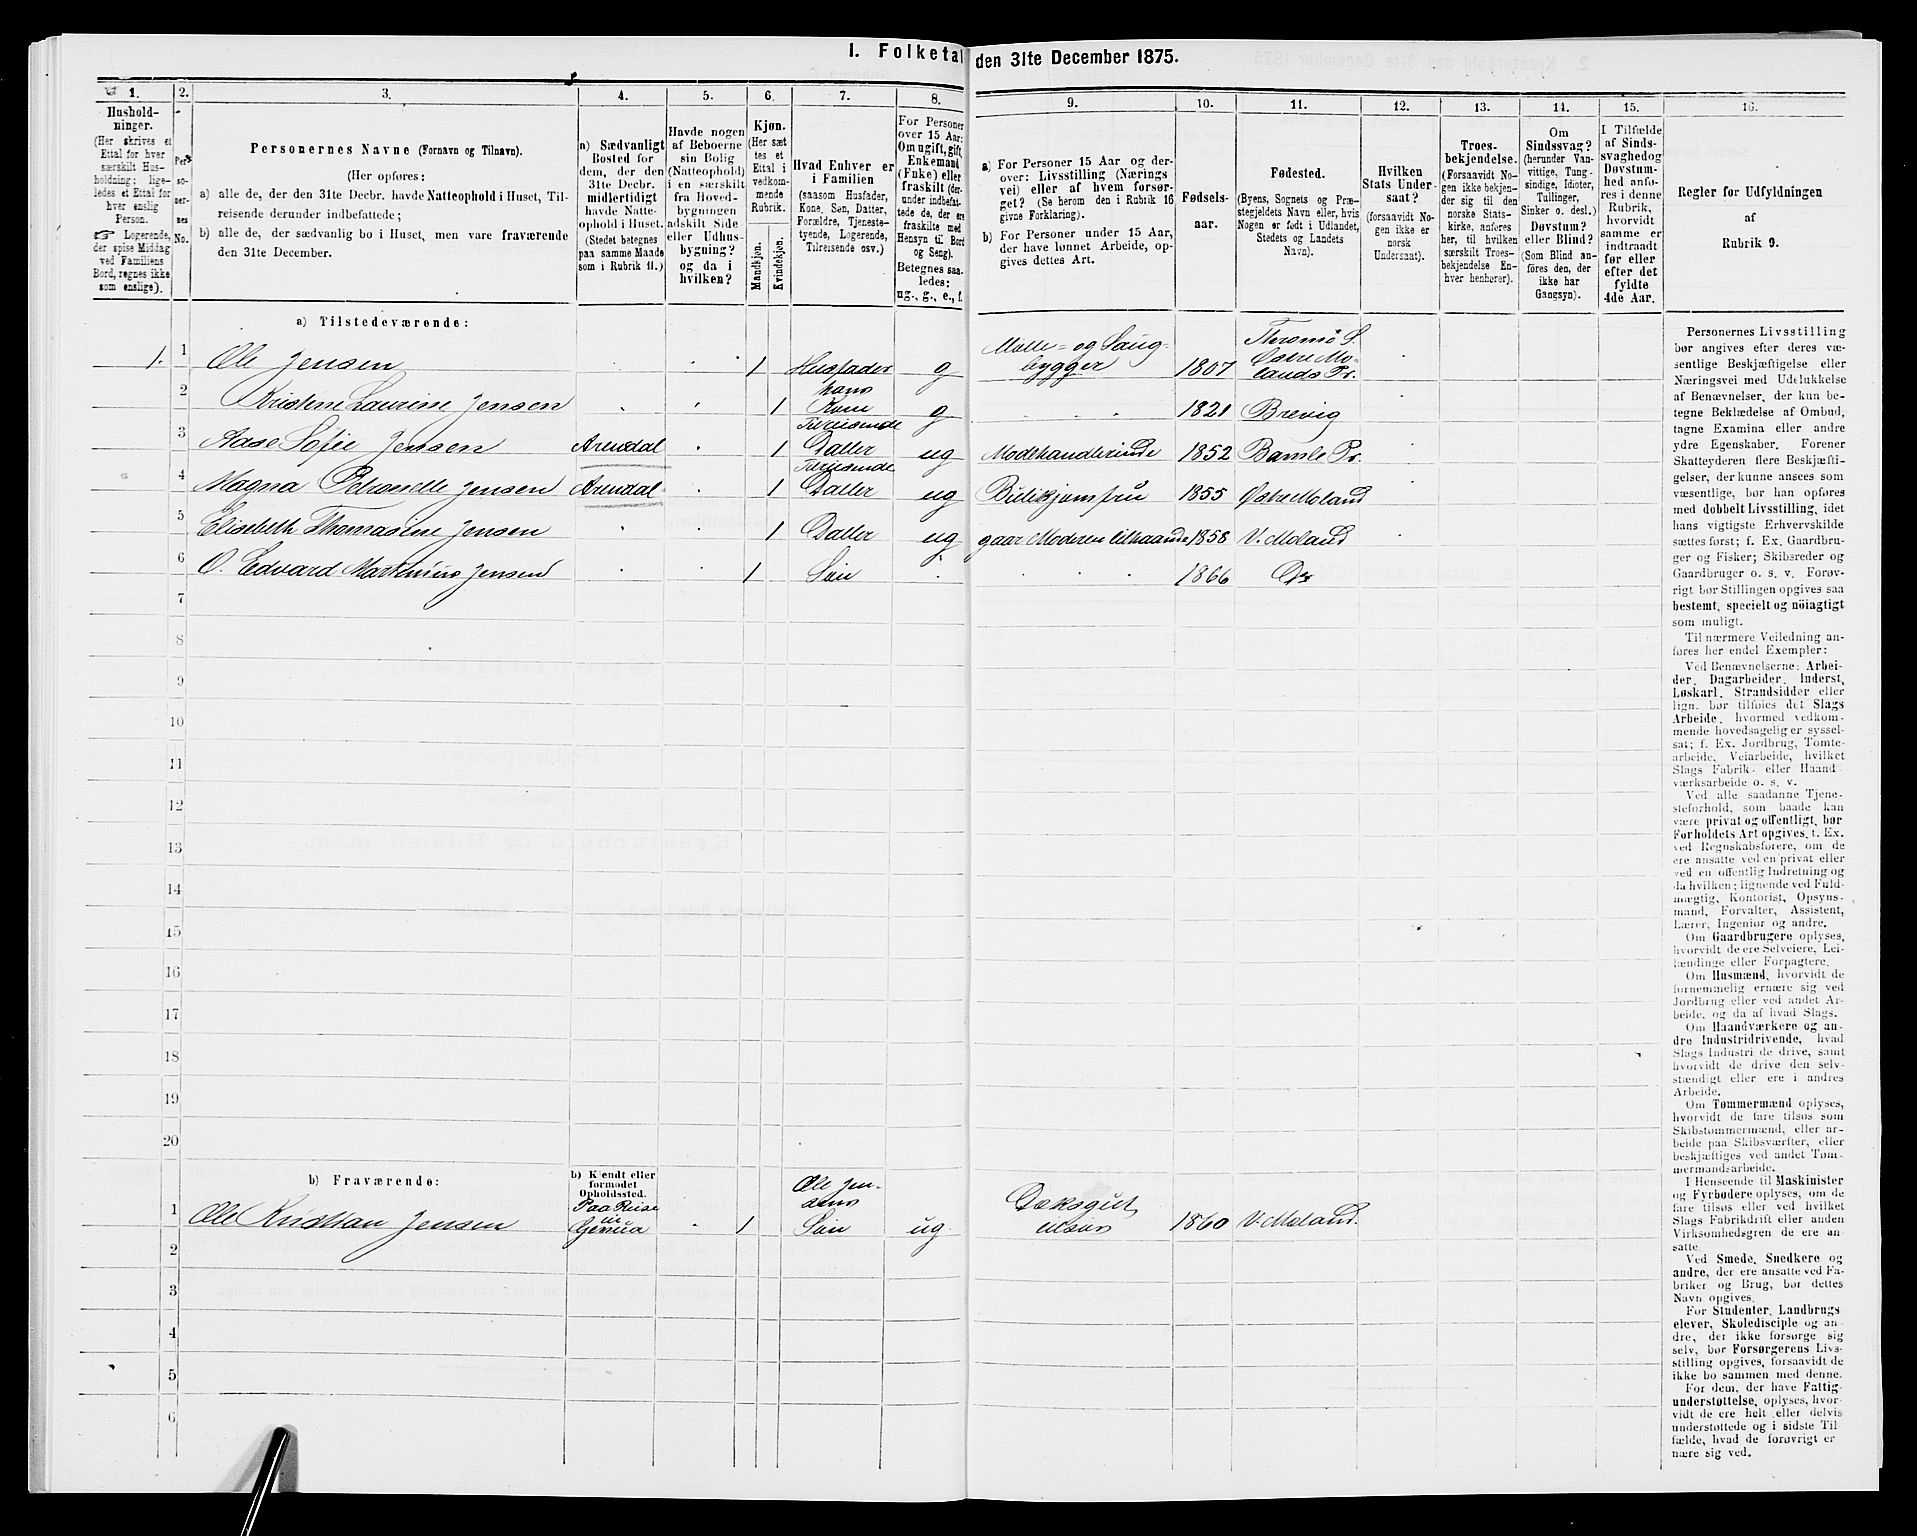 I. Folketal den 31te December 1875.
1. 2. 3. 4. 5. 6. 7. 8. 9. 10. 11. 12. 13. 14. 15. 16.
Hushold-
ninger.
(Her skrives et
Ettal for hver
særskilt Hus-
holdning; lige-
ledes et Ettal for
hver enslig
Person.
☞ Logerende,
der spise Middag
ved Familiens
Bord, regnes ikke
som enslige).
Per-
so-
ner-
nes
No.
Personernes Navne (Fornavn og Tilnavn).
(Her opføres:
a) alle de, der den 31te Decbr. havde Natteophold i Huset, Til-
reisende derunder indbefattede;
b) alle de, der sædvanlig bo i Huset, men vare fraværende
den 31te December.
a) Sædvanligt
Bosted for
dem, der den
31te Decbr.
midlertidigt
havde Natte-
ophold i Huset.
(Stedet betegnes
paa samme Maade
som i Rubrik 11.)
Havde nogen
af Beboerne
sin Bolig
(Natteophold)
i en særskilt
fra Hoved-
bygningen
adskilt Side
eller Udhus-
bygning?
og da i
hvilken?
Kjøn.
(Her sæt
tes et
Ettal i
vedkom-
mende
Rubrik.
Mandkjøn.
Kvindekjøn.
Hvad Enhver er
i Familien
(saasom Husfader,
Kone, Søn, Datter,
Forældre, Tjeneste-
tyende, Logerende,
Tilreisende osv.)
For Personer
over 15 Aar:
Om ugift, gift,
Enkemand
(Enke) eller
fraskilt (der-
under indbefat-
tede de, der ere
fraskilte med
Hensyn til Bord
og Seng).
Betegnes saa-
ledes:
ug., g., e., f.
a) For Personer 15 Aar og der-
over: Livsstilling (Nærings
vei) eller af hvem forsør-
get? (Se herom den i Rubrik 16
givne Forklaring).
b) For Personer under 15 Aar,
der have lønnet Arbeide, op-
gives dettes Art.
Fødsels-
aar.
Fødested.
(Byens, Sognets og Præ-
stegjeldets Navn eller, hvis
Nogen er født i Udlandet,
Stedets og Landets
Navn).
Hvilken
Stats Under-
saat?
(forsaavidt No-
gen ikke er
norsk
Undersaat).
Troes-
bekjendelse.
(Forsaavidt No-
gen ikke bekjen-
der sig til den
norske Stats-
kirke, anføres
her, til hvilken
særskilt Troes-
bekjendelse En-
hver henhører).
Om
Sindssvag?
(herunder Van-
vittige, Tung-
sindige, Idioter,
Tullinger,
Sinker o. desl.)
Døvstum?
eller Blind?
(Som Blind an-
føres den, der
ikke har
Gangsyn).
I Tilfælde
af Sinds-
svaghed og
Døvstum-
hed anfø-
res i denne
Rubrik,
hvorvidt
samme er
indtraadt
før eller
efter det
fyldte
4de Aar.
Regler for Udfyldningen
af
Rubrik 9.
a) Tilstedeværende:
1. 1 Ole Jensen 1 Husfader g Mølle- og Saug- bygger 1807 Thromö S. Østre Mo- lands Pr.
2 Kristene Laurine Jensen 1 hans Kone g 1821 Brevig
3 Aase Sofie Jensen Arendal 1 Tilreisende Datter ug Modehandlerinde 1852 Bamle Pr.
4 Magna Petronelle Jensen Arendal 1 Tilreisende Datter ug Butikjomfru 1855 Østre Moland
5 Elisabeth Thomasine Jensen 1 Datter ug gaar Moderen tilhaande 1858 V. Moland
6 O. Edvard Marthinius Jensen 1 Søn 1866 Do
7
8
9
10
11
12
13
14
15
16
17
18
19
20
b) Fraværende:
b) Kjendt eller
formodet
Opholdssted.
1 Ole Kristian Jensen Paa Reise til Genua 1 Ole Jen- sens Søn ug Dæksgut tilsøs 1860 V. Moland.
2
3
4
5
6
Personernes Livsstilling
bør angives efter deres væ-
sentlige Beskjæftigelse eller
Næringsvei med Udelukkelse
af Benævnelser, der kun be-
tegne Beklædelse af Ombud,
tagne Examina eller andre
ydre Egenskaber. Forener
Skatteyderen flere Beskjæfti-
gelser, der kunne ansees som
væsentlige, bør han opføres
med dobbelt Livsstilling, idet
hans vigtigste Erhvervskilde
sættes først; f. Ex. Gaardbru-
ger og Fisker; Skibsreder og
Gaardbruger o. s. v. Forøv-
rigt bør Stillingen opgives saa
bestemt, specielt og nöiagtigt
som muligt.
Til nærmere Veiledning an-
føres her endel Exempler:
Ved Benævnelserne: Arbei-
der, Dagarbeider, Inderst,
Løskarl, Strandsidder eller
lign. bør tilføies det Slags
Arbeide, hvormed vedkom-
mende hovedsagelig er syssel-
sat; f. Ex. Jordbrug, Tomte-
arbeide, Veiarbeide, hvilket
Slags Fabrik- eller Haand
værksarbeide o. s. v.
Ved alle saadanne Tjene-
steforhold, som baade kan
være privat og offentligt, bør
Forholdets Art opgives, t. Ex.
ved Regnskabsførere, om de
ere ansatte ved en privat eller
ved en offentlig Indretning og
da hvilken; lignende ved Fuld-
mægtig, Kontorist, Opsyns-
mand, Forvalter, Assistent,
Lærer, Ingeniør og andre.
Om Gaardbrugere oplyses,
hvorvidt de ere Selveiere, Lei-
lændinge eller Forpagtere.
Om Husmænd, hvorvidt de
fornemmelig ernære sig ved
Jordbrug eller ved andet Ar-
beide, og da af hvad Slags.
Om Haandværkere og an-
dre Industridrivende, hvad
Slags Industri de drive, samt
hvorvidt de drive den selv-
stændigt eller ere i andres
Arbeide.
Om Tømmermænd oplyses,
hvorvidt de fare tilsøs som
Skibstømmermænd, eller ar-
beide paa Skibsværfter, eller
beskjæftiges ved andet Tøm-
mermandsarbeide.
I Henseende til Maskinister
og Fyrbødere oplyses, om de
fare tilsøs eller ved hvilket
Slags Fabrikdrift eller anden
Virksomhedsgren de ere an-
satte.
Ved Smede, Snedkere og
andre, der ere ansatte ved Fa-
briker og Brug, bør dettes
Navn opgives.
For Studenter, Landbrugs
elever, Skoledisciple og an-
dre, der ikke forsørge sig
selv, bør Forsørgerens Livs-
stilling opgives, forsaavidt de
ikke bo sammen med denne.
For dem, der have Fattig-
understøttelse, oplyses, hvor-
vidt de ere helt eller delvis
understøttede og i sidste Til-
fælde, hvad de forøvrigt er
nære sig ved.